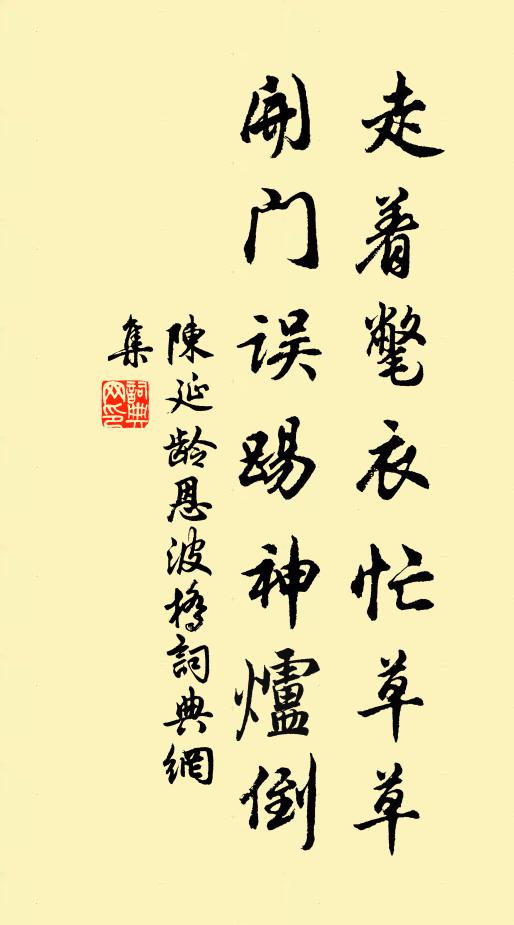 走着氅衣忙草草
開门误踢神爐倒
陳延龄恩波橋詞典網
集
詞典
网印